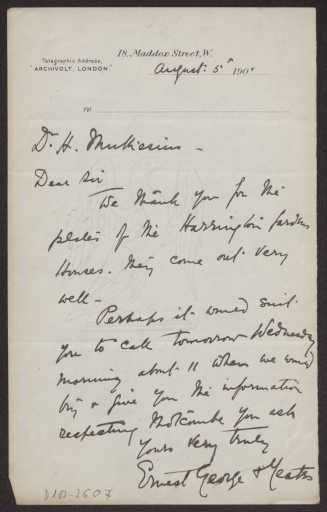 18, Maddox Street, W.
Telegraphic Address,
"ARCHIVOLT, LONDON"
August 5th 190
TO
Dr. H. Muthesius -
Dear Sir
We thank you for the
plates of the Harrington Gardens
Houses. They come out very
well -
Perhaps it would suit
you to call tomorrow Wednesday
morning about 11 when we would
try & give you the information
respecting Motcombe you ask
Yours very truly
Ernest George & Yeates
D102-2607